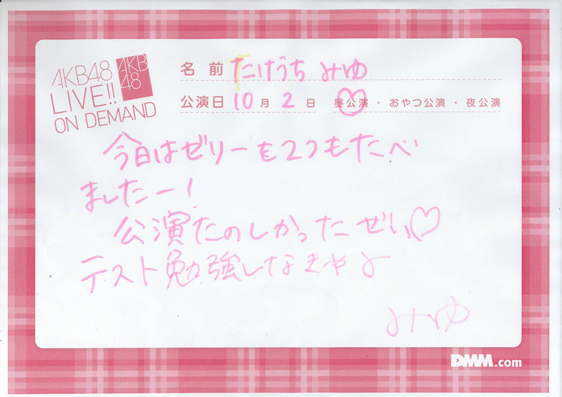 AKB48
LIVE!!
ON DEMAND
AKB
48
名前 たけうち みゆ
公演日 10月 2日 昼公演・おやつ公演・夜公演
今日はゼリーを2つもたべ
ましたー!
公演たのしかったぜい♡
テスト勉強しなきゃよ
みゆ
DMM.com